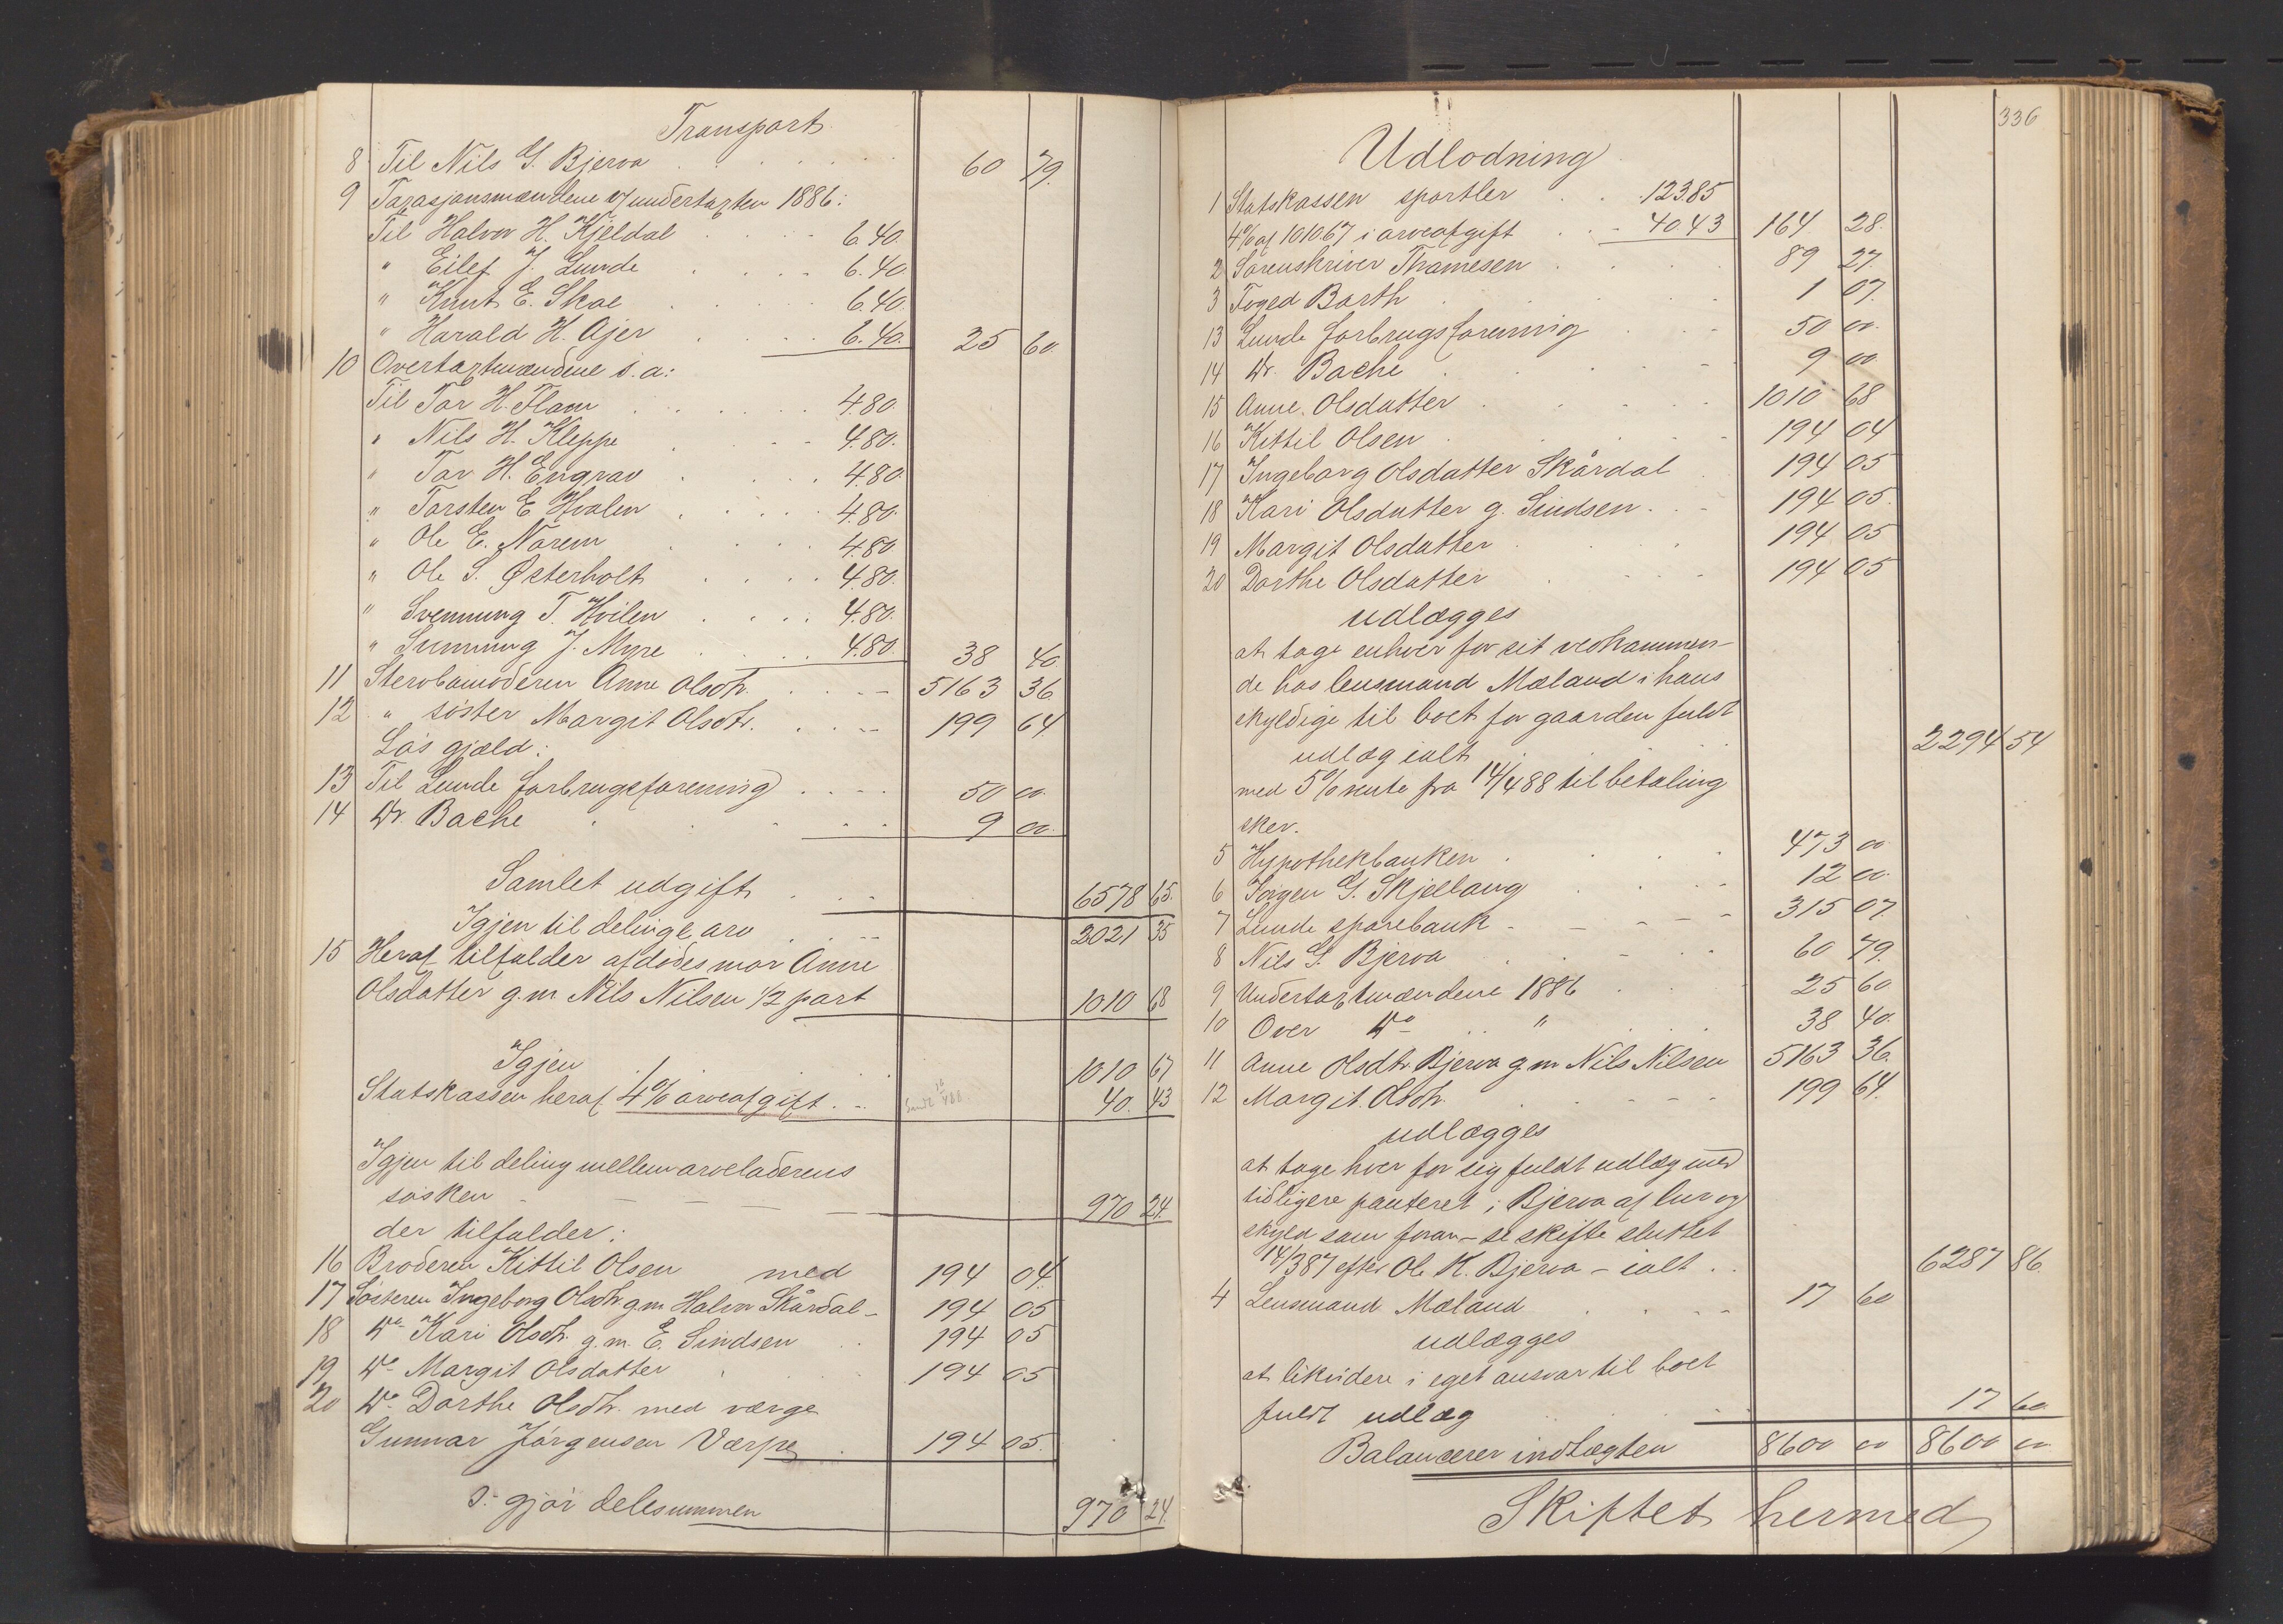 Transport
8 Til Nils G. Bjerva . . . . . . 60 79.
9 Taxasjonsmændene v/ undertaxten 1886:
Til Halvor H. Kjeldal . . . . 6.40.
" Eilef J. Lunde . . . . 6.40.
" Knut E. Skoe . . . . 6.40.
" Harald H. Ajer . . . . 6.40. 25 60.
10 Overtaxtmændene s. a:
Til Tor H. Flom . . . . . . 4.80.
" Nils H. Kleppe . . . . 4.80.
" Tor H. Engrav . . . . 4.80.
" Torsten E. Hvalen . . . . 4.80.
" Ole E. Norem . . . . 4.80.
" Ole S. Østerholt . . . . 4.80.
" Svennung T. Hvilen . . . . 4.80.
" Sunnung J. Myre . . . . 4.80. 38 40.
11 Stervbomoderen Anne Olsdtr. . . . 5163 36
12 " søster Margit Olsdtr. . . . 199 64
Løs gjæld:
13 Til Lunde forbrugsforening . . . . 50 00.
14 Dr. Bache . . . . . 9 00.
Samlet udgift . . . 6578 65.
Igjen til delinge arv . . . 2021 35
15 Heraf tilfalder afdødes mor Anne
Olsdatter g.m Nils Nilsen 1/2 part 1010 68
Igjen . . . . 1010 67
Statskassen heraf 4% arveafgift . . 40. 43
Igjen til deling mellem arveladerens
søsken - - - - 970 24.
der tilfalder:
16 Broderen Kittil Olsen med 194 04.
17 Søsteren Ingeborg Olsdtr gm Halvor Skårdal - 194 05
18 Do Kari Olsdtr. g.m. E. Sindsen . . 194 05
19 Do Margit Olsdatter . . . 194 05
20 Do Dorthe Olsdtr. med værge
Gunnar Jørgensen Værpe . 194 05.
s. gjør delesummen 970 24.
336
Udlodning
1 Statskassen sportler . . . 123.85
4% af 1010.67 i arveafgift . . . 40.43 164. 28.
2 Sorenskriver Thomesen . . . . 89 27.
3 Foged Barth . . . . . 1 07.
13 Lunde forbrugsforening . . . 50 00.
14 Dr. Bache . . . . . 9 00
15 Anne Olsdatter . . . . . 1010 68
16 Kittil Olsen . . . . . 194 04
17 Ingeborg Olsdatter Skårdal . 194 05
18 Kari Olsdatter g. Sindsen . . - 194 05.
19 Margit Olsdatter . . . . 194 05
20 Dorthe Olsdatter . . . . 194 05
udlægges
at tage enhver for sit vedkommen-
de hos lensmand Mæland i hans
skyldige til boet for gaarden fuldt
udlæg ialt . . . . 2294 54
med 5% rente fra 14/4 88 til betaling
sker.
5 Hypothekbanken . . . . . 473 00
6 Jørgen G. Skjelbaug . . . . 12 00.
7 Lunde sparebank - - - - 315 07
8 Nils G. Bjerva . . . . 60 79.
9 Undertaxtmændene 1886 . . . 25 60
10 Over Do . . " . . . 38 40.
11 Anne Olsdtr Bjerva g m Nils Nilsen 5163 36.
12 Margit Olsdtr. . . . . . 199 64.
udlægges
at tage hver for sig fuldt udlæg med
tidligere panteret i Bjerva af bnr og
skyld som foran - se skifte sluttet
14/3 87 efter Ole K. Bjerva - ialt . . 6287 86.
4 Lensmand Mæland . . . . 17 60
udlægges
at likvidere i eget ansvar til boet
fuldt udlæg . . . . 17 60.
Balancerer indtægten 8600 00 8600 00.
Skiftet hermed